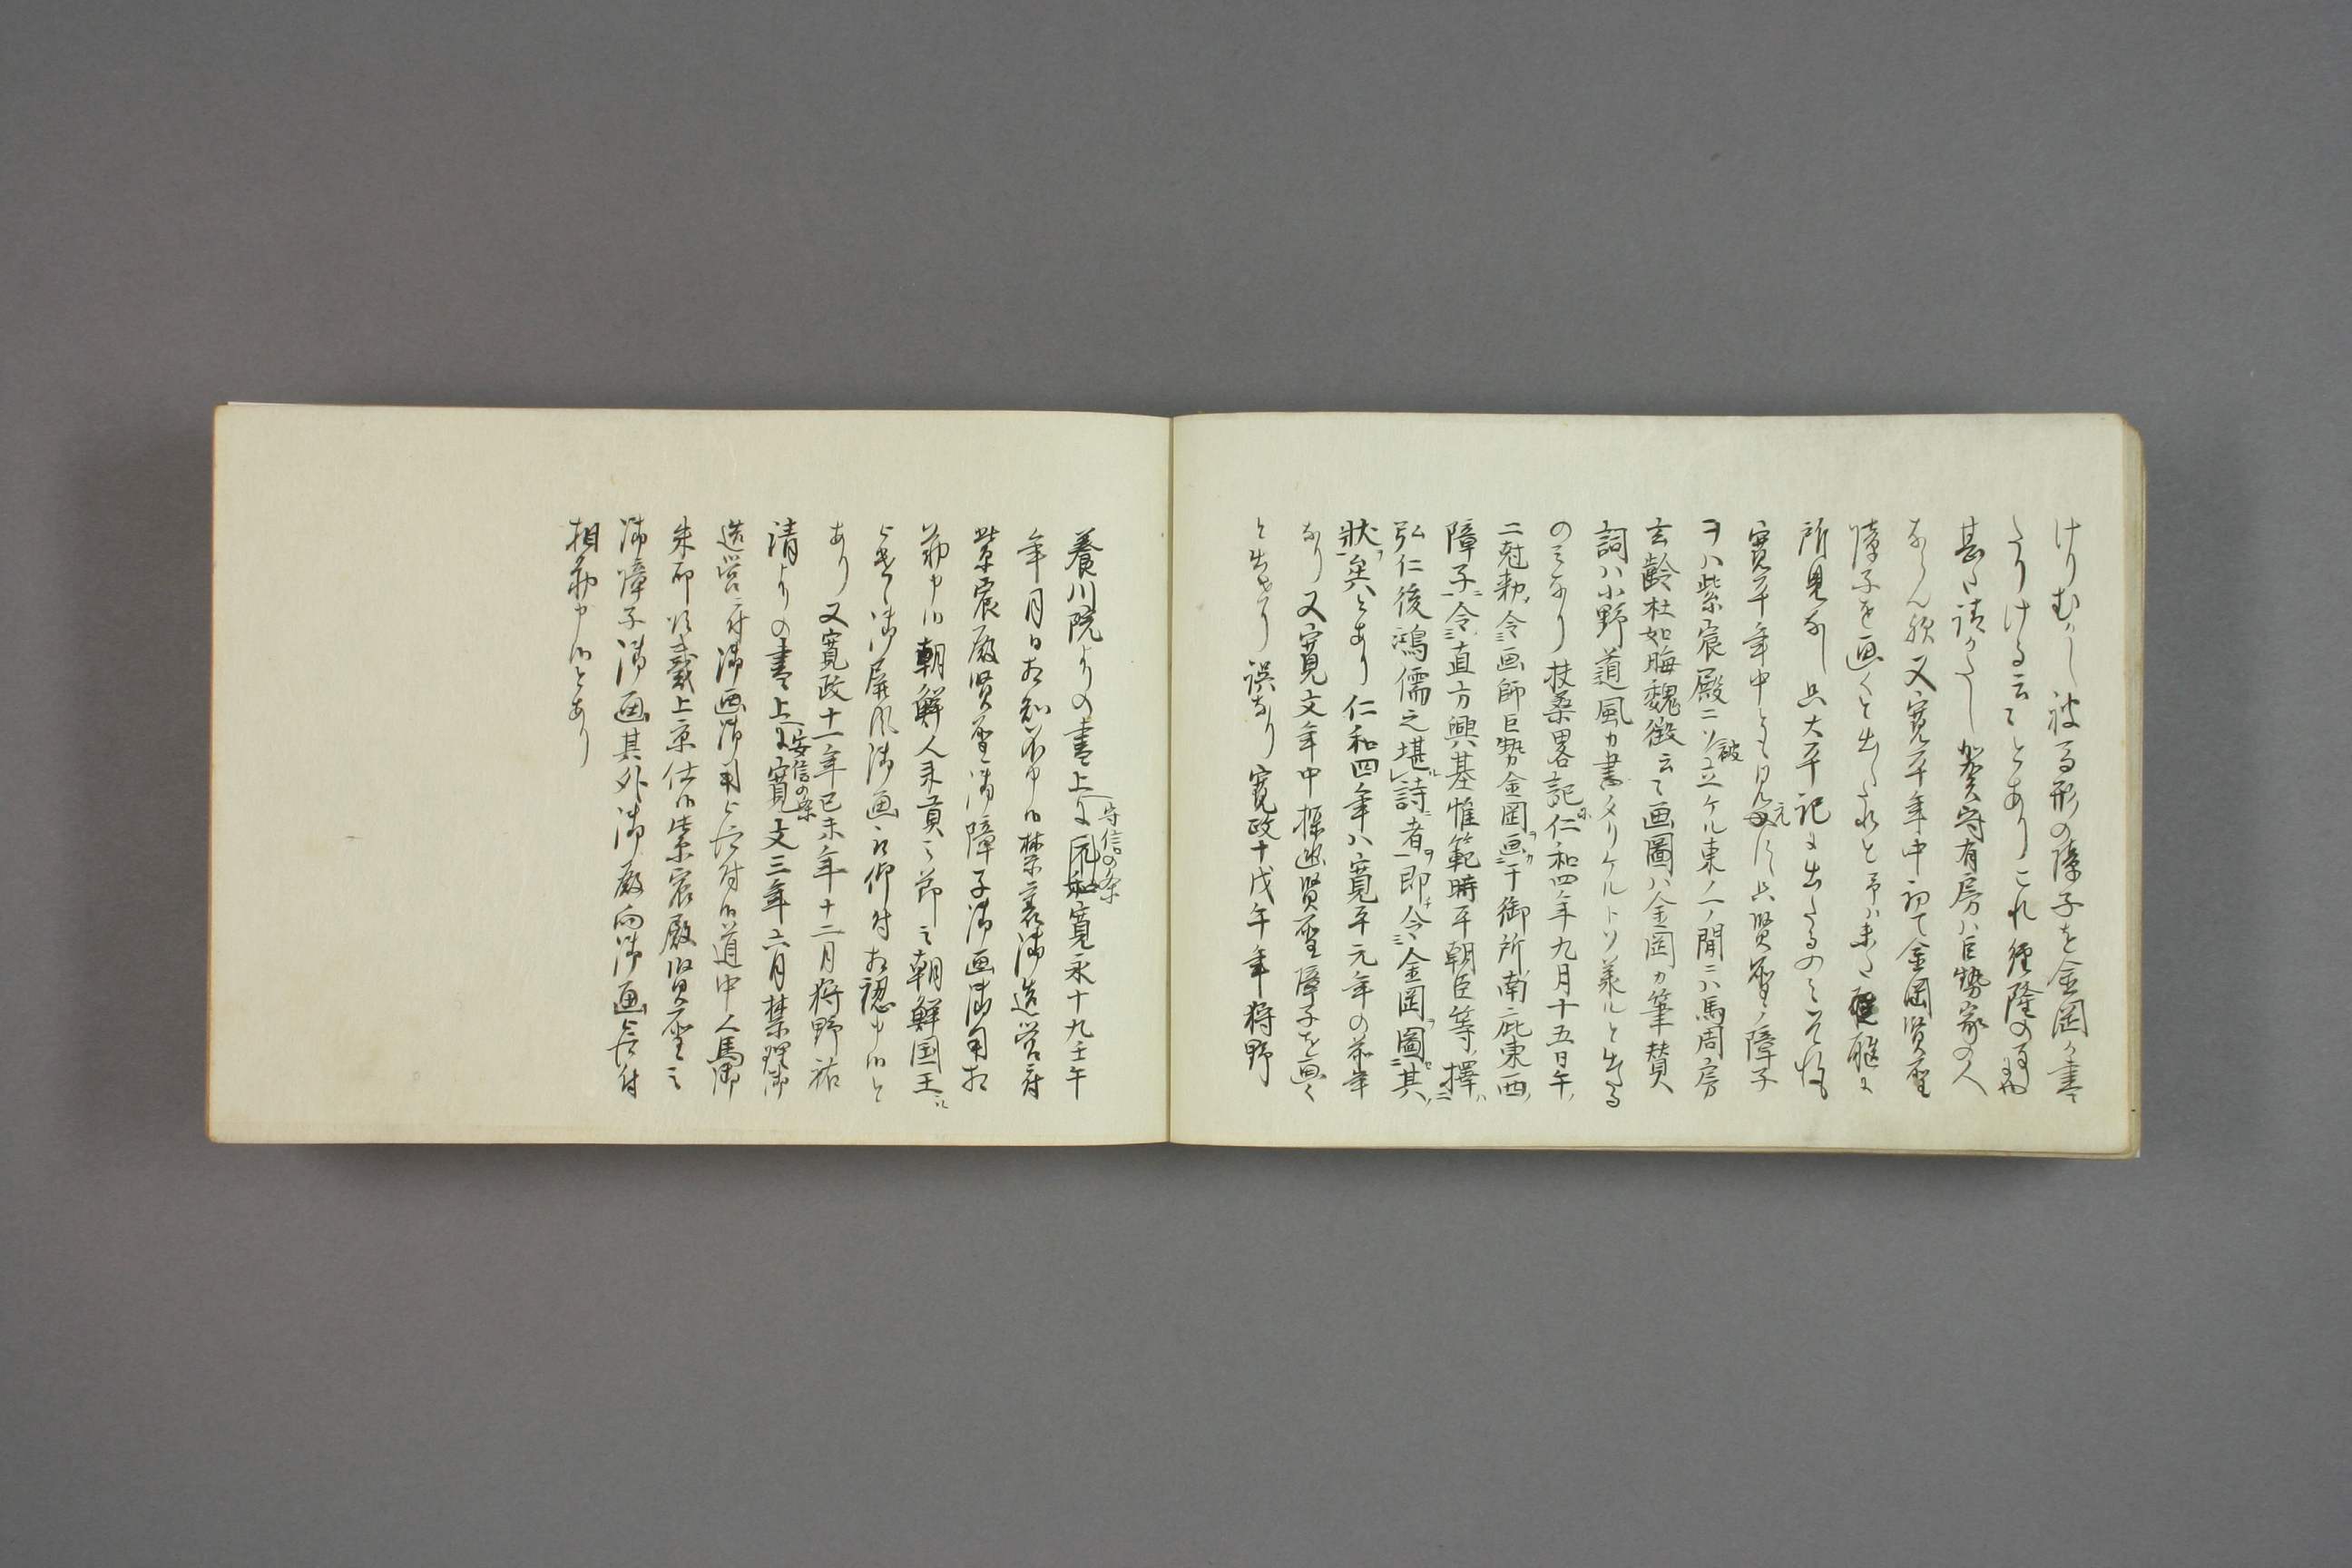 けりむかし被る形の障子を金岡か畫
たりける云々とありこれ経隆の
甚た請かたし賀守有房ハ巨勢家の人
ならん 又寛平年中初て金岡賢聖
障子を画くと出たれと予ハ未た 聴に
所見なし只太平記に出たるのミ
寛平年中とも見えす只賢聖ノ障子
ヲハ紫宸殿ニソ被立ケル東ノ一ノ間ニハ馬周房
玄齢杜如晦魏徴云々画圖ハ金岡カ筆賛
詞ハ小野道風カ書タリケルトソ義ルと出たる
のミなり扶桑畧記に仁和四年九月十五日午
二尅勅令画師巨勢金岡画于御所南庇東西
障子令直方興基惟範時平朝臣等擇
弘仁後鴻儒之堪詩者即令金岡圖其
状矣とあり仁和四年ハ寛平元年の前年
なり又寛文年中探幽賢聖障子を画く
と出せり誤なり寛政十戊午年狩野
養川院よりの書上に守信の条寛永十九壬午
年月日相知不申候禁裏御造営ニ付
紫宸殿賢聖御障子御画御用相
勤申候朝鮮人来貢之節之朝鮮国王に
御屏風御画被仰付相認申候と
あり又寛政十一年己未年十二月狩野祐
清よりの書上に安信の条寛文三年六月禁裡御
造営ニ付御画御用被仰付候道中人馬御
朱印頂戴上京仕候紫宸殿賢聖之
御障子御画其外御殿向御画被仰付
相勤申候とあり